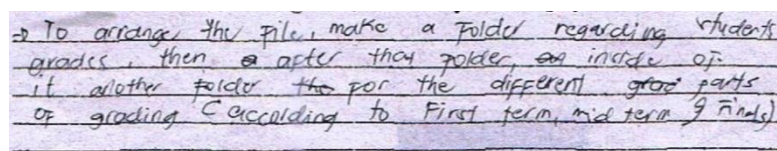 → To arrange the file, make a Folder regarding students
grades, then after that folder, inside of
it another folder for the different parts
of grading (according to First term, mid term & Finals)